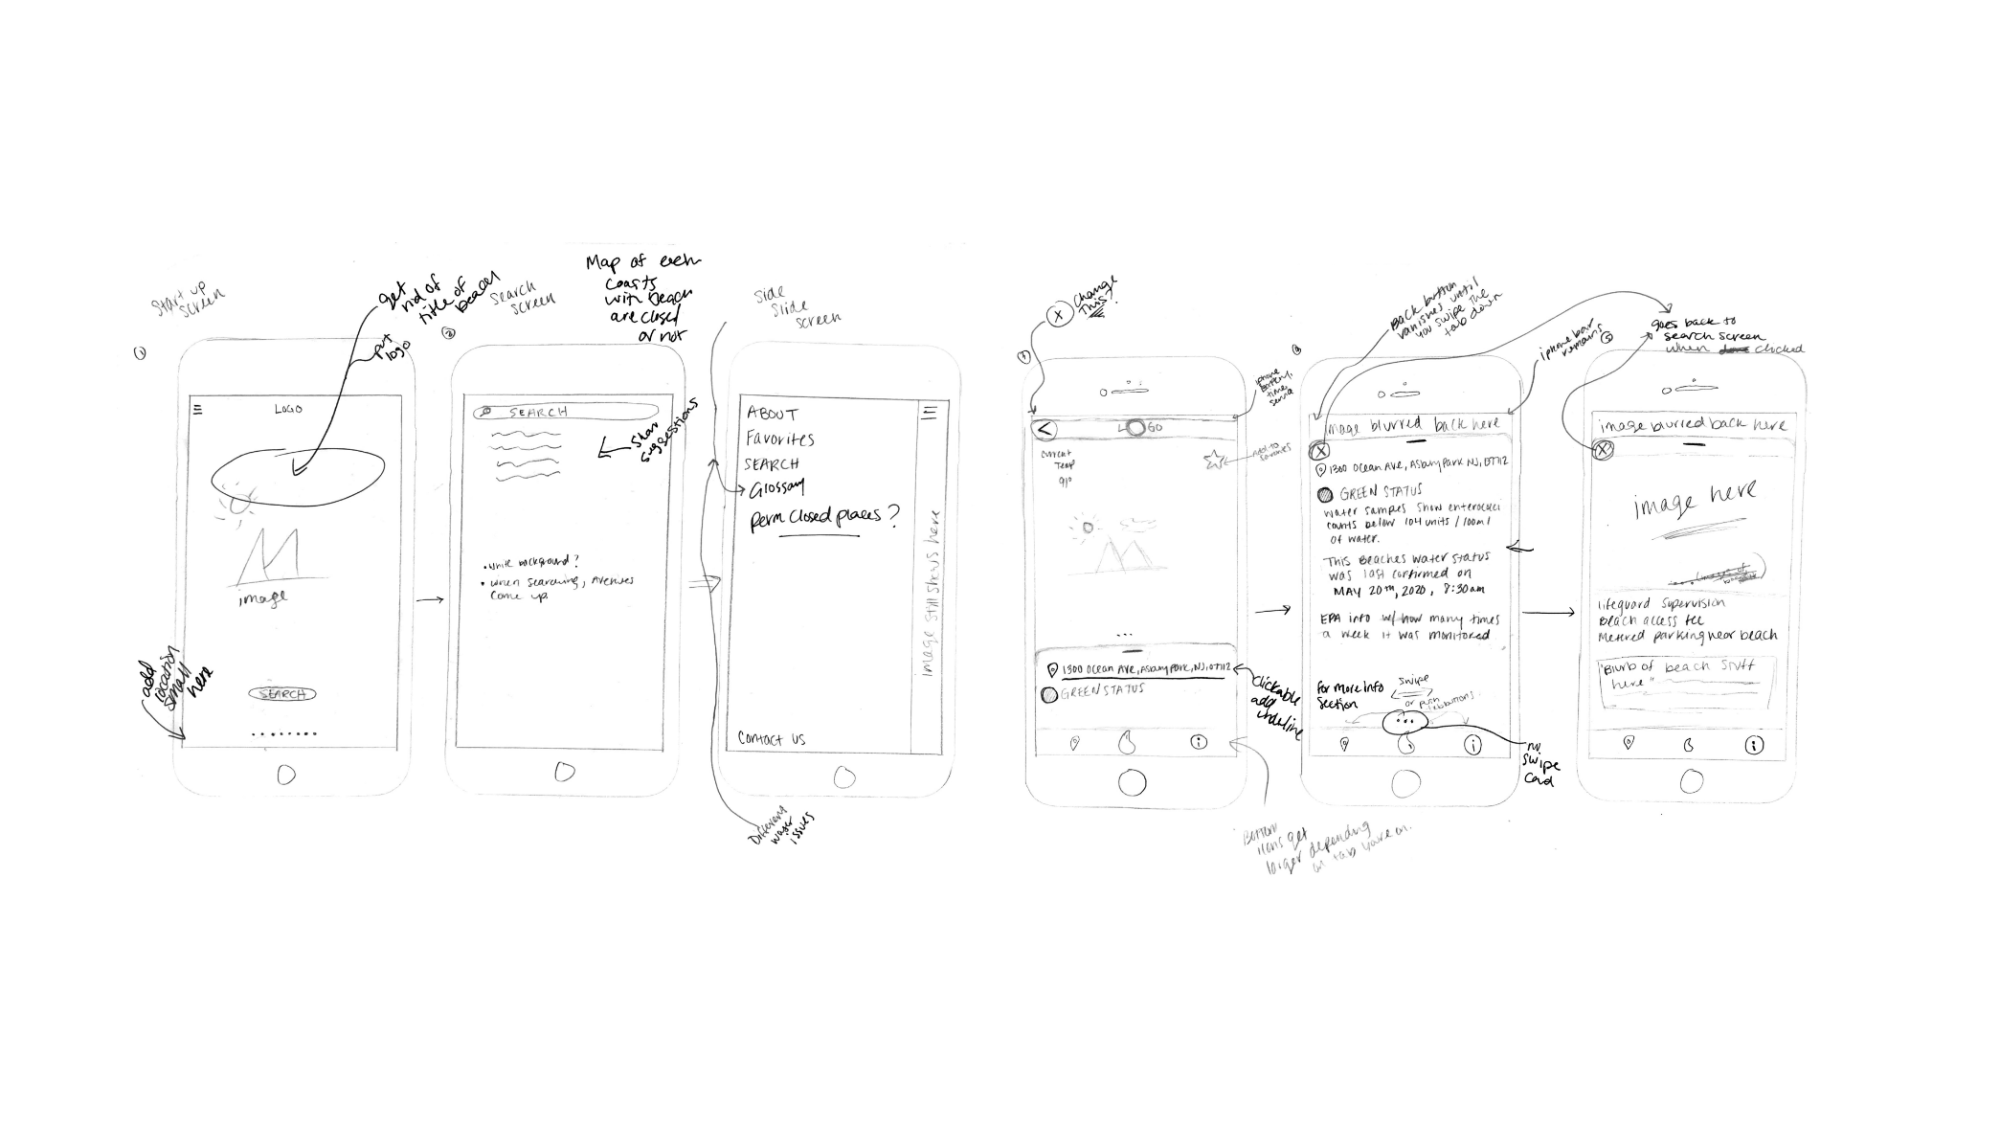 Start up
screen
get
rid of
title of
beach
put
logo
①
LOGO
image
add
location
small
here
SEARCH
Search
screen
②
SEARCH
show
suggestions
• white background?
• when searching, Avenues
come up
Map of each
coasts
with beach
are closed
or not
Side
Slide
screen
ABOUT
Favorites
SEARCH
Glossary
perm closed places?
image still shows here
Contact us
Different
water
issues
X
Change
This?
iphone
battery,
time,
LOGO
current
Temp
90
Add to
favorites
...
1300 Ocean Ave, Asbury Park, NJ, 07712
GREEN STATUS
Clickable
add
underline
i
Bottom
icons get
larger depending
on tab you're on.
Back button
vanishes until
you swipe the
tab down
iphone bar
remains
image blurred back here
X
1300 Ocean Ave, Asbury Park NJ, 07712
GREEN STATUS
water samples show enterococci
counts below 104 units / 100ml
of water.
This Beaches water status
was last confirmed on
MAY 20th, 2020, 8:30am
EPA info w/ how many times
a week it was monitored
For More Info
Section
swipe
or push
buttons
...
i
no
swipe
card
goes back to
search screen
when clicked
image blurred back here
X
image here
lifeguard supervision
Beach access fee
Metered parking near beach
"Blurb of beach stuff
here"
i